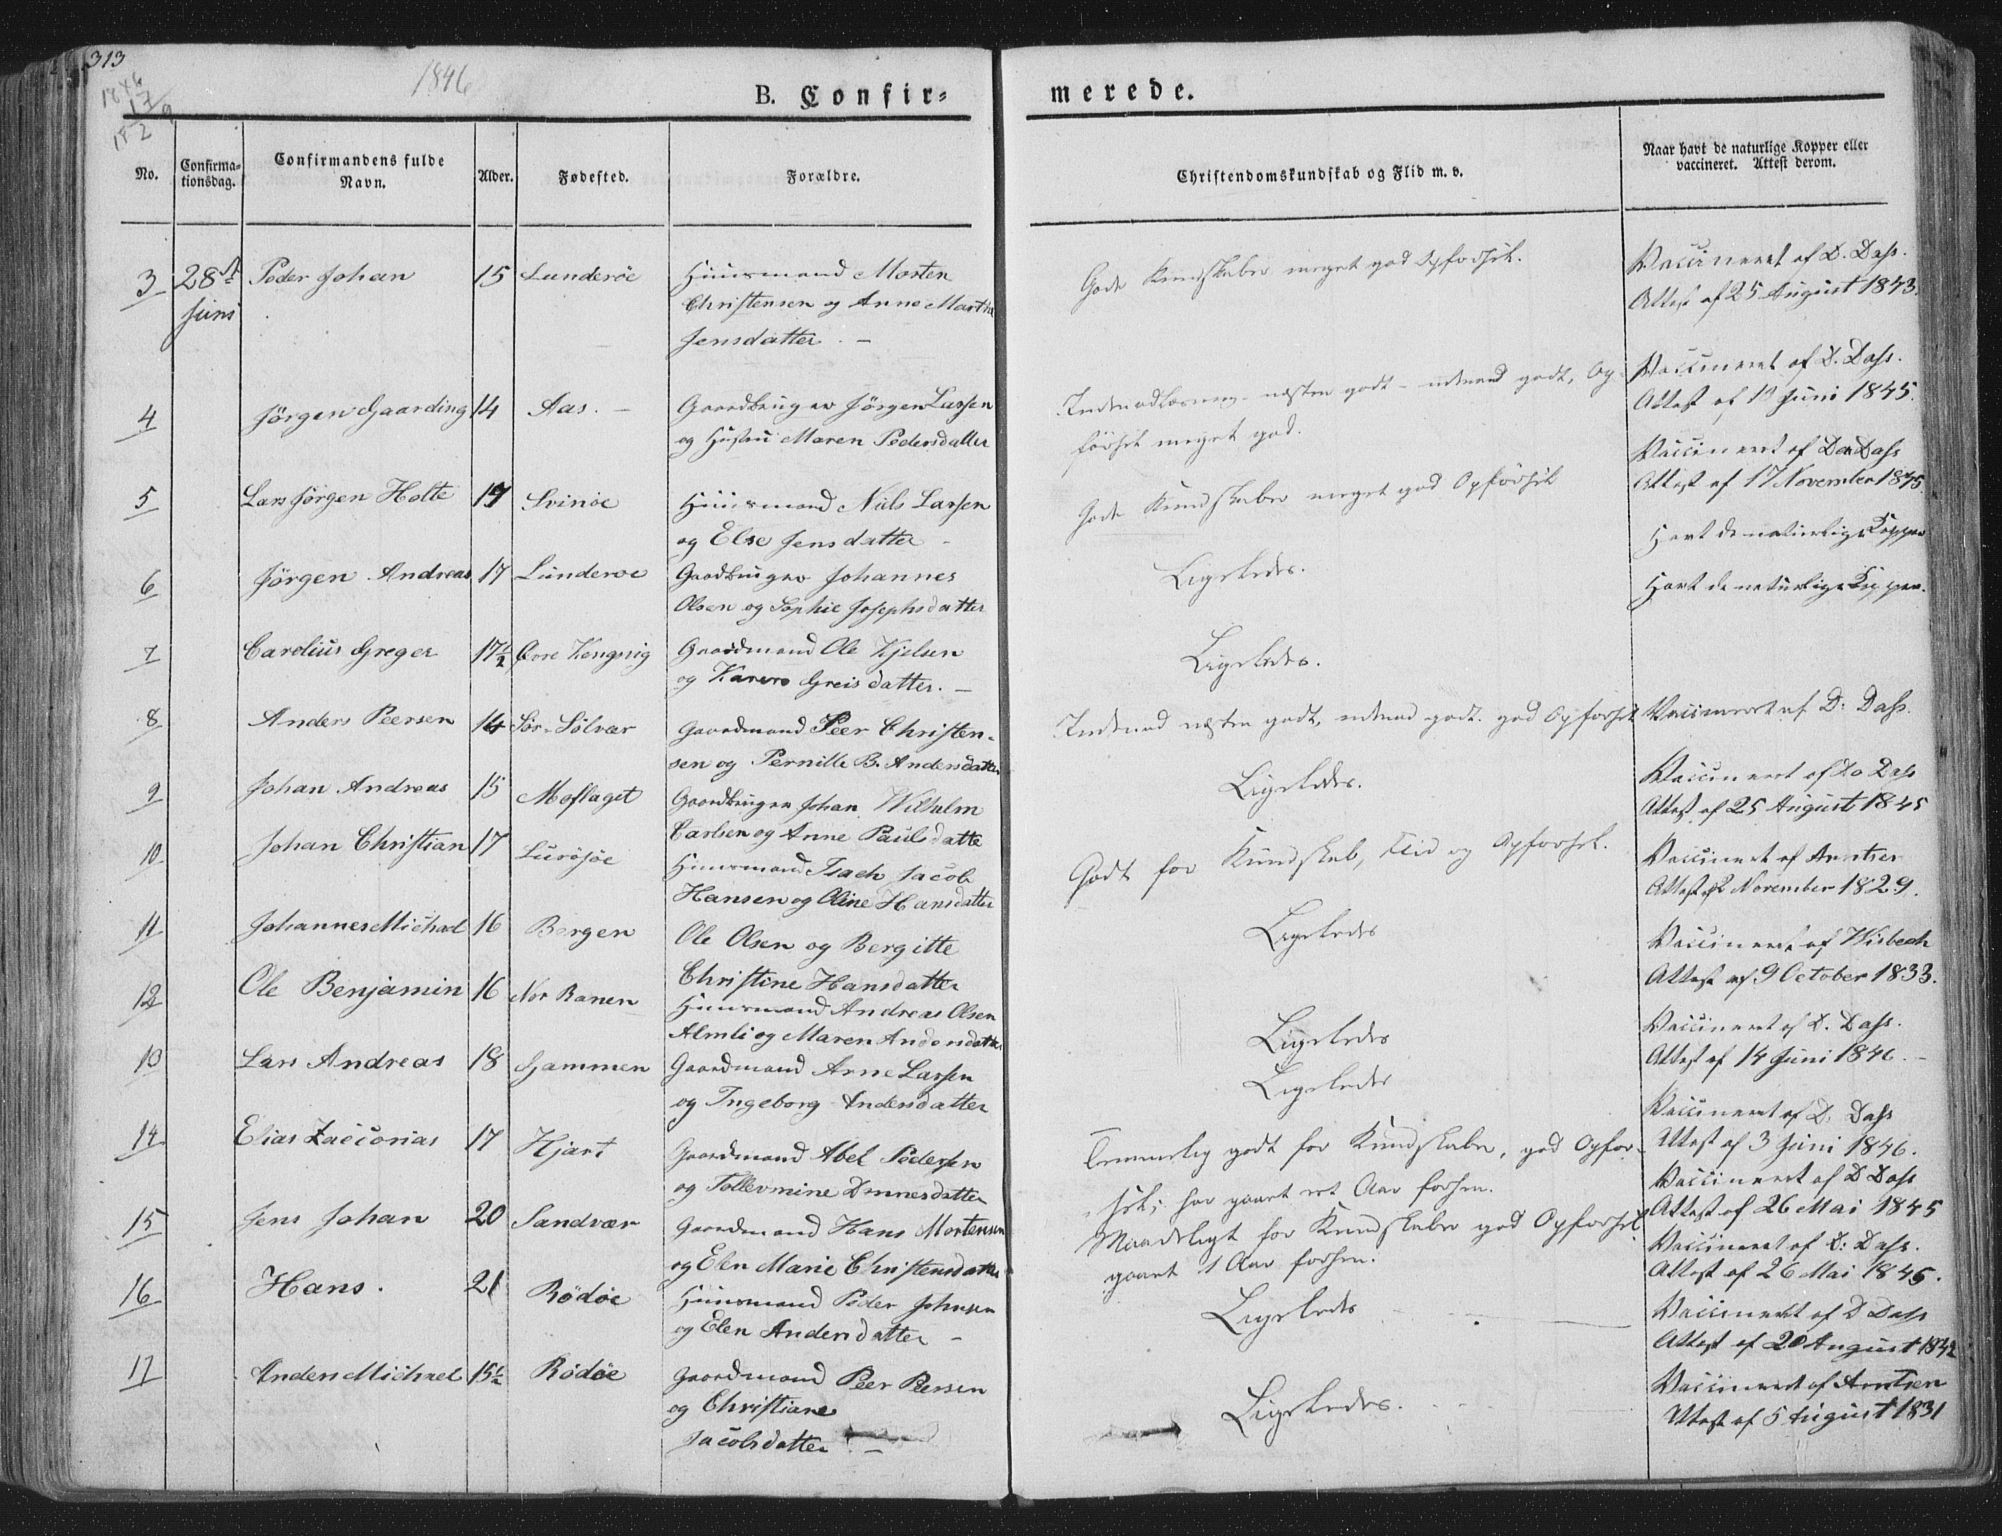 313
1846
1846
17
1829
B. Confir-
merede.
No.
Confirma-
tionsdag.
Confirmandens fulde
Navn.
Alder.
Fødested.
Forældre.
Christendomskundskab og Flid m. v.
Naar havt de naturlige Kopper eller
vaccineret. Attest derom.
3 28de Juni Peder Johan 15 Lunderöe Huusmand Morten
Christensen og Anne Martha
Jensdatter. —
Gode Kundskaber meget god Opförsel.
Vaccineret af D. Dass.
Attest af 25 August 1843.
4 Jörgen Gaarding 14 Aas. — Gaardbruger Jörgen Larsen
og Hustru Maren Pedersdatter
Indenadlæsning næsten godt - udenad godt, Op-
försel meget god.
Vaccineret af D. Dass.
Attest af 19 Juni 1845.
5 Lars Jörgen Holte 19 Svinöe Huusmand Niels Larsen
og Else Jensdatter -
Gode Kundskaber meget god Opförsel
Vaccineret af Do Dass
Attest af 17 November 1845.
6 Jörgen Andreas 17 Lunderoe Gaardbruger Johannes
Olsen og Sophie Josephsdatter
Ligeledes.
Havt de naturlige Kopper
7 Carolius Greger 17½ Qvre Kongsvig Gaardmand Ole Kjelsen
og Karen Greisdatter. —
Ligeledes.
Havt de naturlige Kopper.
8 Anders Peersen 14 Sör-Sölvær Gaardmand Peer Christen-
sen og Pernille B. Andersdatter
Indenad næsten godt, udenad godt. god Opförsel
Vaccineret af D. Dass.
9 Johan Andreas 15 Moflaget Gaardbruger Johan Wilhelm
Carlsen og Anne Paulsdatter
Ligeledes.
Vaccineret af Do Dass
Attest af 25 August 1845
10 Johan Christian 17 Huusmand Isach Jacob
Hansen og Oline Hansdatter
Godt for Kundskab, Flid og Opforsel.
Vaccineret af Arntsen
Attest af 2 November 1829.
11 Johannes Michael 16 Bergen Ole Olsen og Bergitte
Christine Hansdatter
Ligeledes
Vaccineret af Wisbech
Attest af 9 October 1833.
12 Ole Benjamin 16 Nor Ranen Huusmand Andreas Olsen
Almli og Maren Andersdatter
Ligeledes
Vaccineret af D. Dass.
Attest af 14 Juni 1846. —
13 Lars Andreas 18 Gammen Gaardmand Arne Larsen
og Ingeborg Andersdatter
Ligeledes
Vaccineret af D. Dass
Attest af 3 Juni 1846.
14 Elias Zacconias 17 Hjart Gaardmand Abel Pedersen
og Tollevmine
Temmelig godt for Kundskaber, god Opfor-
sel; har gaaet et Aar forhen.
Vaccineret af D Dass
Attest af 26 Mai 1845
15 Jens Johan 20 Sandvær Gaardmand Hans Mortensen
og Elen Marie Christensdatter
Maadeligt for Kundskaber god Opforsel
gaaet 1 Aar forhen.
Vaccineret af D: Dass.
Attest af 26 Mai 1845.
16 Hans. 21 Rödöe Huusmand Peder Johnsen
og Elen Andersdatter —
Ligeledes
Vaccineret af D Dass
Attest af 20 August 1842
17 Anders Michael 15½ Rödöe Gaardmand Peer Peersen
og Christiane
Jacobsdatter. —
Ligeledes.
Vaccineret af Arntsen
Attest af 5 August 1831